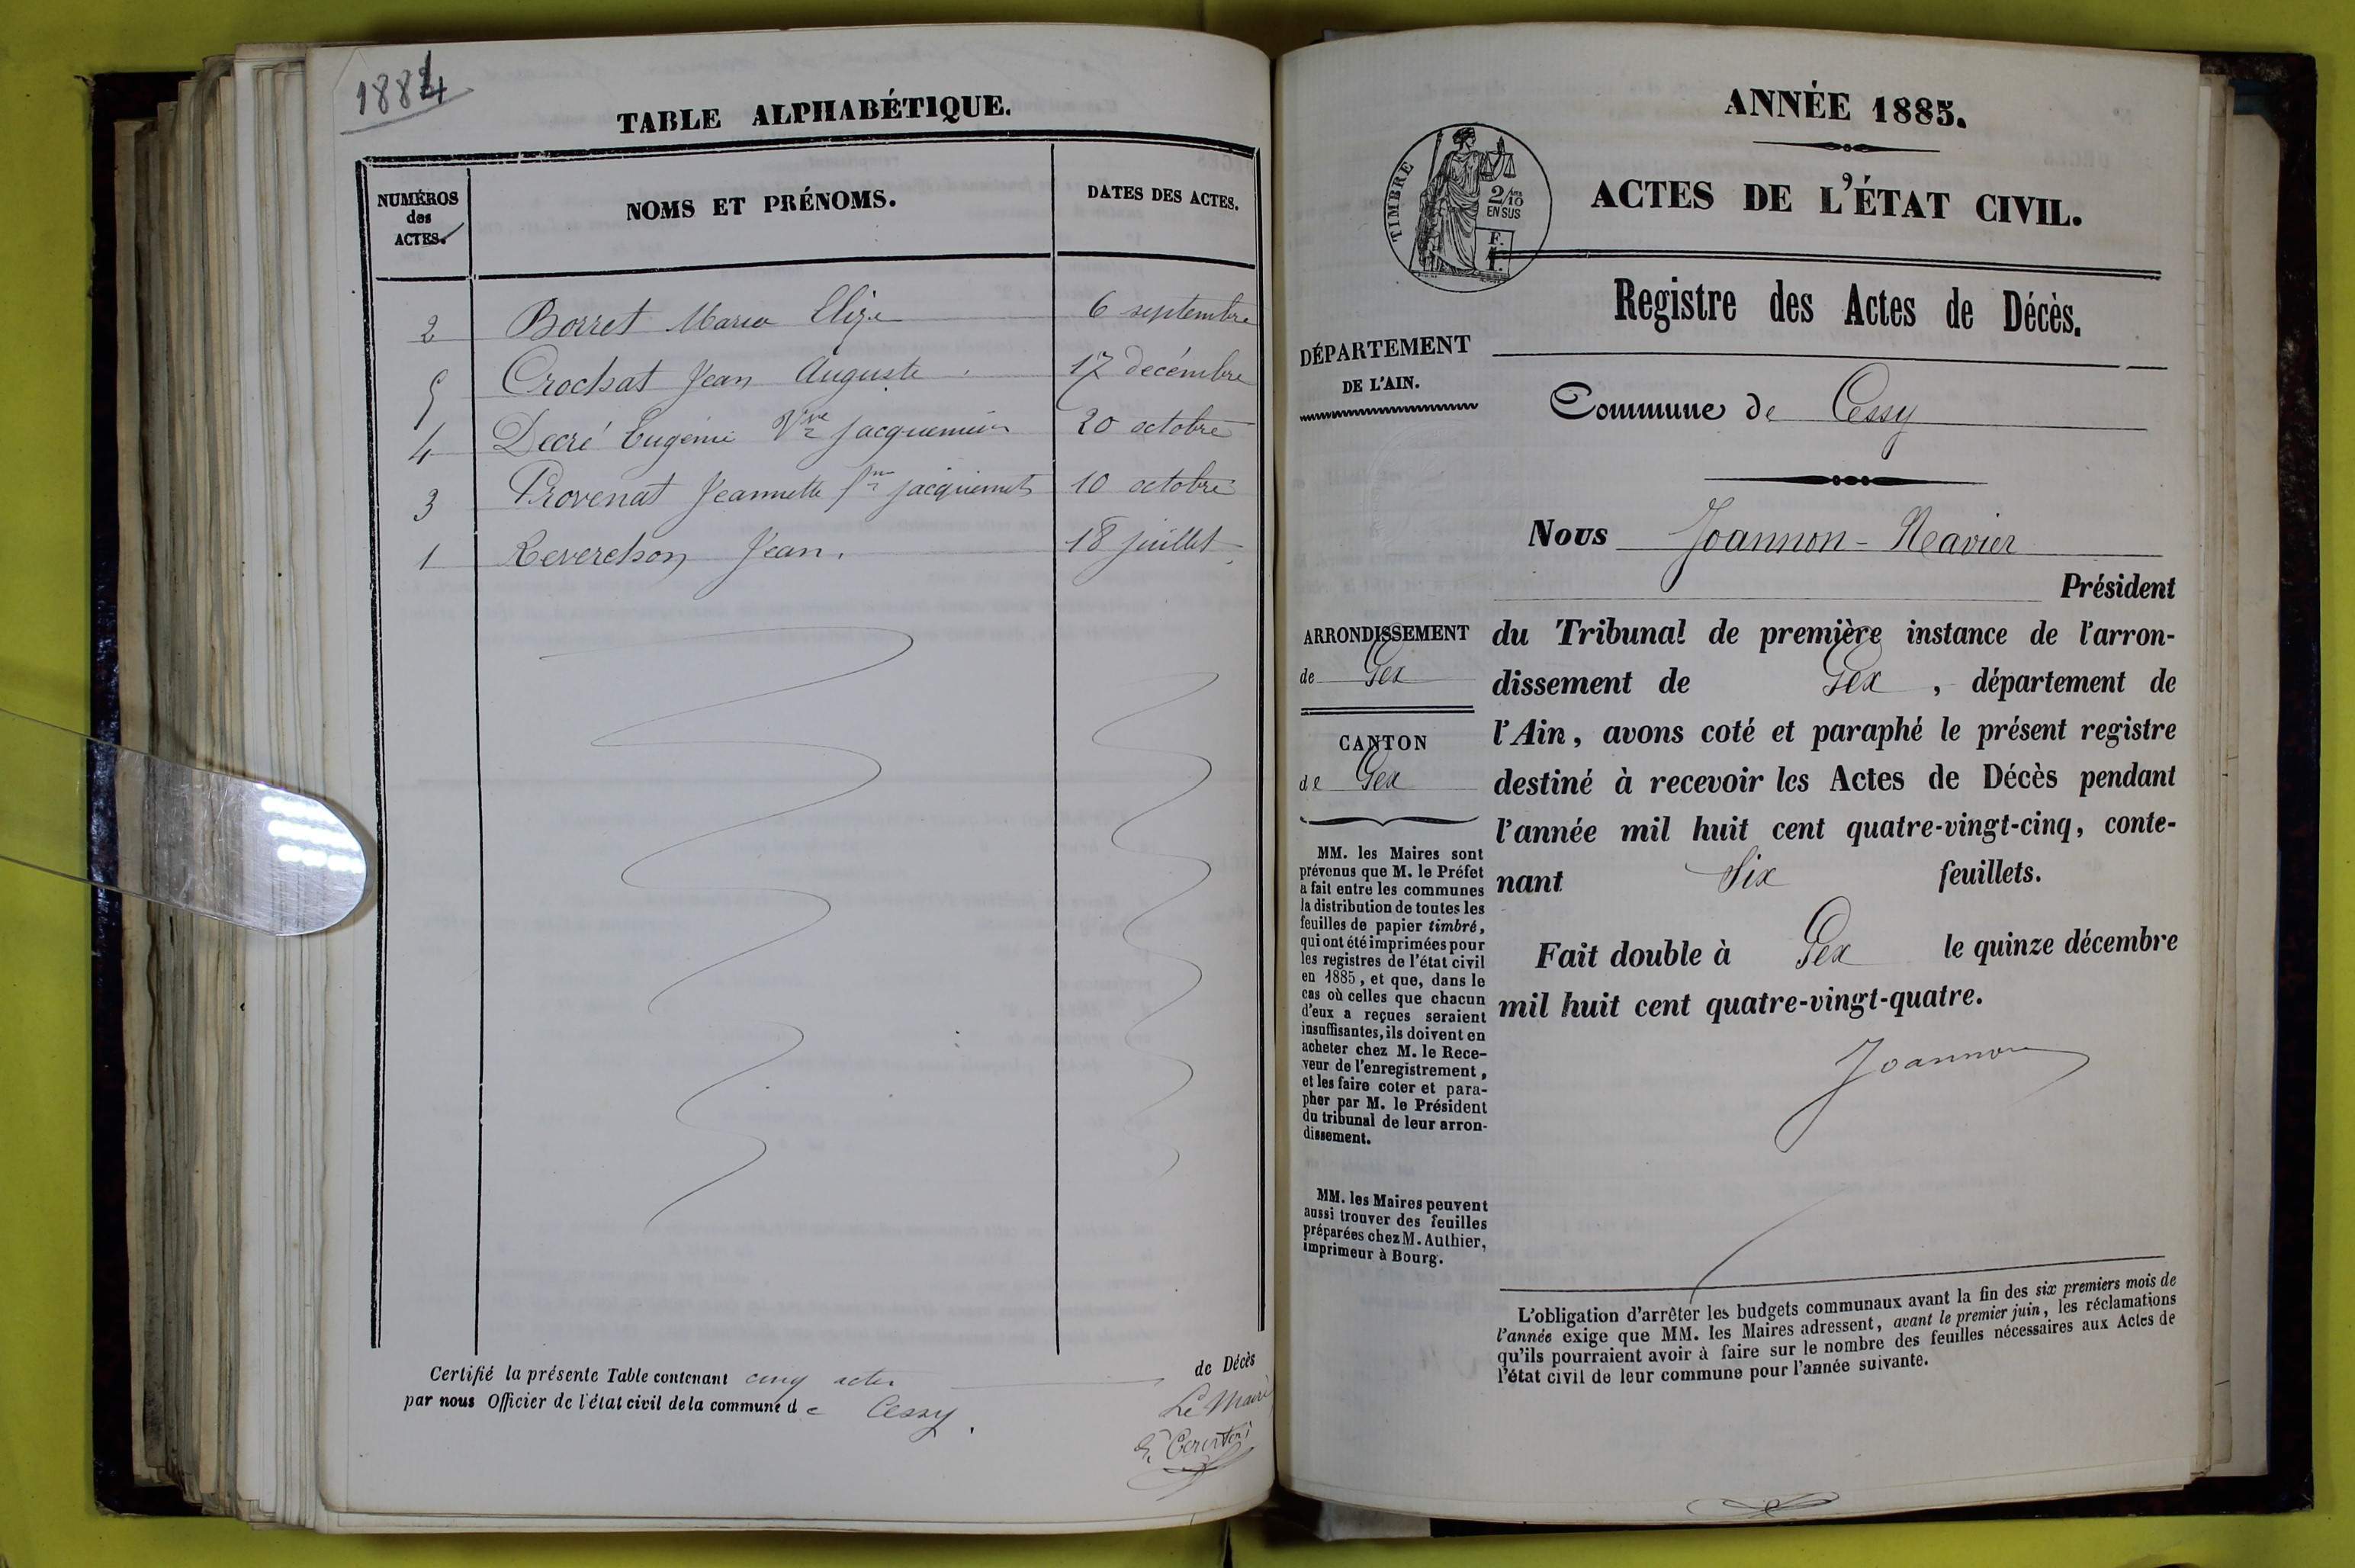 1884
TABLE ALPHABÉTIQUE.
NUMÉROS
des
ACTES.
NOMS ET PRÉNOMS.
DATES DES ACTES.
2 Borret Maria Elize 6 septembre
5 Crochat Jean Auguste 17 décembre
4 Decré Eugénie Vve Jacquemier 20 octobre
3 Provenat Jeannette fme Jacquemet 10 octobre
1 Reverchon Jean. 18 juillet
Certifié la présente Table contenant cinq actes de Décès
par nous Officier de l'état civil de la commune de Cessy.
Le Maire
ANNÉE 1885.
TIMBRE
2/10
EN SUS
F.
1
ACTES DE L'ÉTAT CIVIL.
Registre des Actes de Décès.
DÉPARTEMENT
DE L'AIN.
Commune de Cessy
Nous Joannon-Navier
Président
ARRONDISSEMENT
de Gex
CANTON
de Gex
du Tribunal de première instance de l'arron-
dissement de Gex, département de
l'Ain, avons coté et paraphé le présent registre
destiné à recevoir les Actes de Décès pendant
l'année mil huit cent quatre-vingt-cinq, conte-
nant Six feuillets.
Fait double à Gex le quinze décembre
mil huit cent quatre-vingt-quatre.
Joannon
MM. les Maires sont
prévenus que M. le Préfet
a fait entre les communes
la distribution de toutes les
feuilles de papier timbré,
qui ont été imprimées pour
les registres de l'état civil
en 1885, et que, dans le
cas où celles que chacun
d'eux a reçues seraient
insuffisantes, ils doivent en
acheter chez M. le Rece-
veur de l'enregistrement,
et les faire coter et para-
pher par M. le Président
du tribunal de leur arron-
dissement.
MM. les Maires peuvent
aussi trouver des feuilles
préparées chez M. Authier,
imprimeur à Bourg.
L'obligation d'arrêter les budgets communaux avant la fin des six premiers mois de
l'année exige que MM. les Maires adressent, avant le premier juin, les réclamations
qu'ils pourraient avoir à faire sur le nombre des feuilles nécessaires aux Actes de
l'état civil de leur commune pour l'année suivante.